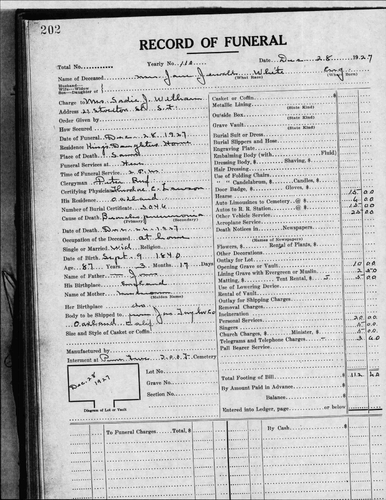 202
RECORD OF FUNERAL
Total No. Yearly No. 110 Date Dec 28 1927
Name of Deceased Mrs Jane White Eng
(What Race) (Where Born)
Husband
Wife-Widow
Son-Daughter of
Charge to Mrs. Sadie J. William
Address 21 Stockton St S.F.
Order Given by
How Secured
Date of Funeral Dec. 28, 1927
Residence King's Daughters Home
Place of Death Same
Funeral Services at Here
Time of Funeral Service 2 P.M.
Clergyman
Certifying Physician Thomas C. Lawson
His Residence Oakland
Number of Burial Certificate 2046
Cause of Death Broncho pneumonia
(Primary) (Secondary)
Date of Death Dec. 26, 1927
Occupation of the Deceased at home
Single or Married Wid Religion
Date of Birth Sept. 9 1840
Age 87 Years 3 Months 17 Days
Name of Father Jones
His Birthplace England
Name of Mother
(Maiden Name)
Her Birthplace do
Body to be Shipped to from Jas Taylor Co
Oakland Calif
Size and Style of Casket or Coffin
Manufactured by
Interment at I.O.O.F. Cemetery
Dec 28
1927
Diagram of Lot or Vault
Lot No.
Grave No.
Section No.
Casket or Coffin
Metallic Lining
(State Kind)
Outside Box
(State Kind)
Grave Vault
(State Kind)
Burial Suit or Dress
Burial Slippers and Hose
Engraving Plate
Embalming Body (with Fluid)
Dressing Body, $ Shaving, $
Hair Dressing
Use of Folding Chairs
" Candelabrum, $ Candles, $
Door Badge, $ Gloves, $
Hearse 15 00
Auto Limousines to Cemetery @ 6 00
Autos to R. R. Station @ 15 00
Other Vehicle Service 25 00
Aeroplane Service
Death Notices in Newspapers
(Names of Newspapers)
Flowers, $ Rental of Plants, $
Other Decorations
Outlay for Lot
Opening Grave or Vault 10 00
Lining Grave with Evergreen or Muslin 2 50
Matting, $ Tent Rental, $ 5 5 00
Use of Lowering Device
Rental of Vault
Outlay for Shipping Charges
Removal Charges
Incineration
Personal Services 20 00
Singers 5 00
Church Charges, $ Minister, $ 5 00
Telegrams and Telephone Charges 3 60
Pall Bearer Service
Total Footing of Bill 112 60
By Amount Paid in Advance
Balance
Entered into Ledger, page or below
To Funeral Charges Total, $ By Cash $